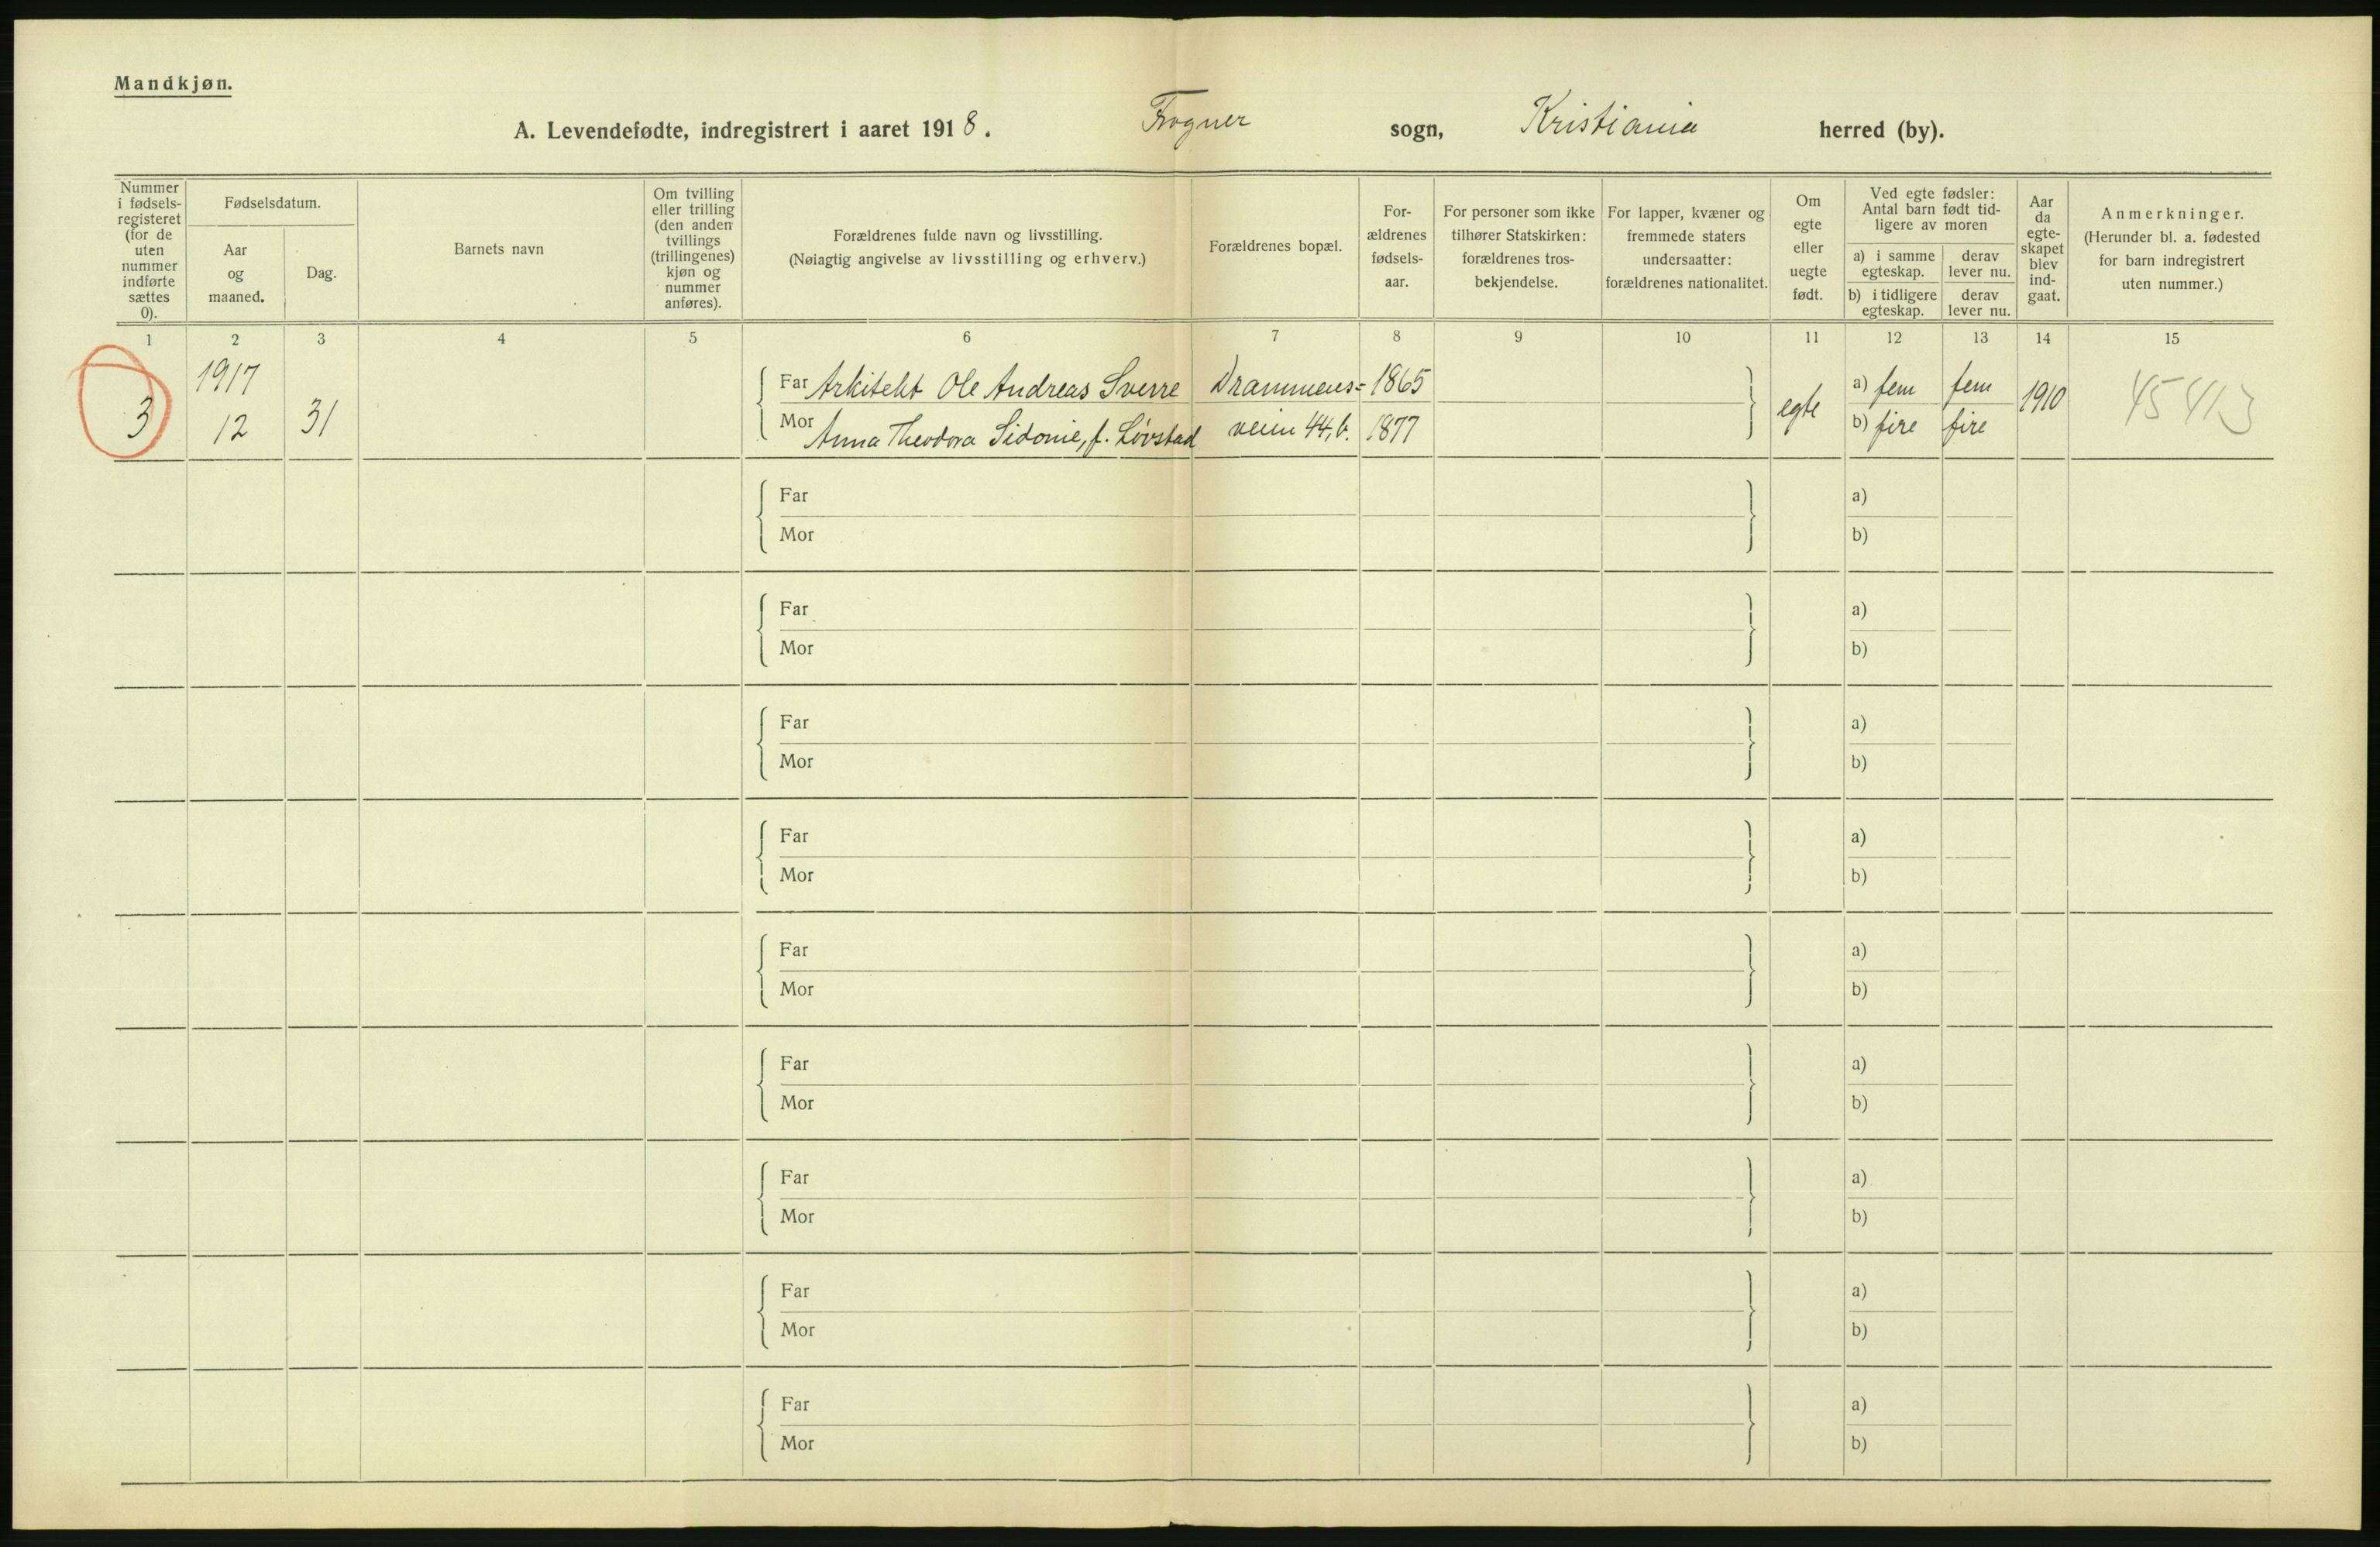 Mandkjøn.
A. Levendefødte, indregistrert i aaret 1918. Frogner sogn, Kristiania herred (by).
Nummer
i fødsels-
registeret
(for de
uten
nummer
indførte
sættes
0).
Fødselsdatum.
Aar
og
maaned.
Dag.
Barnets navn
Om tvilling
eller trilling
(den anden
tvillings
(trillingenes)
kjøn og
nummer
anføres).
Forældrenes fulde navn og livsstilling.
(Nøiagtig angivelse av livsstilling og erhverv.)
Forældrenes bopæl.
For-
ældrenes
fødsels-
aar.
For personer som ikke
tilhører Statskirken:
forældrenes tros-
bekjendelse.
For lapper, kvæner og
fremmede staters
undersaatter:
forældrenes nationalitet.
Om
egte
eller
uegte
født.
Ved egte fødsler:
Antal barn født tid-
ligere av moren
a) i samme
egteskap.
derav
lever nu.
b) i tidligere
egteskap.
derav
lever nu.
Aar
da
egte-
skapet
blev
ind-
gaat.
Anmerkninger.
(Herunder bl. a. fødested
for barn indregistrert
uten nummer.)
1 2 3 4 5 6 7 8 9 10 11 12 13 14 15
1917 Far Arkitekt Ole Andreas Sverre Drammens= 1865 a) fem fem
3 12 31 Mor Anna Theodora Sidonie, f. Løvstad veien 44, b. 1877 egte b) fire fire 1910 45413
Far a)
Mor b)
Far a)
Mor b)
Far a)
Mor b)
Far a)
Mor b)
Far a)
Mor b)
Far a)
Mor b)
Far a)
Mor b)
Far a)
Mor b)
Far a)
Mor b)